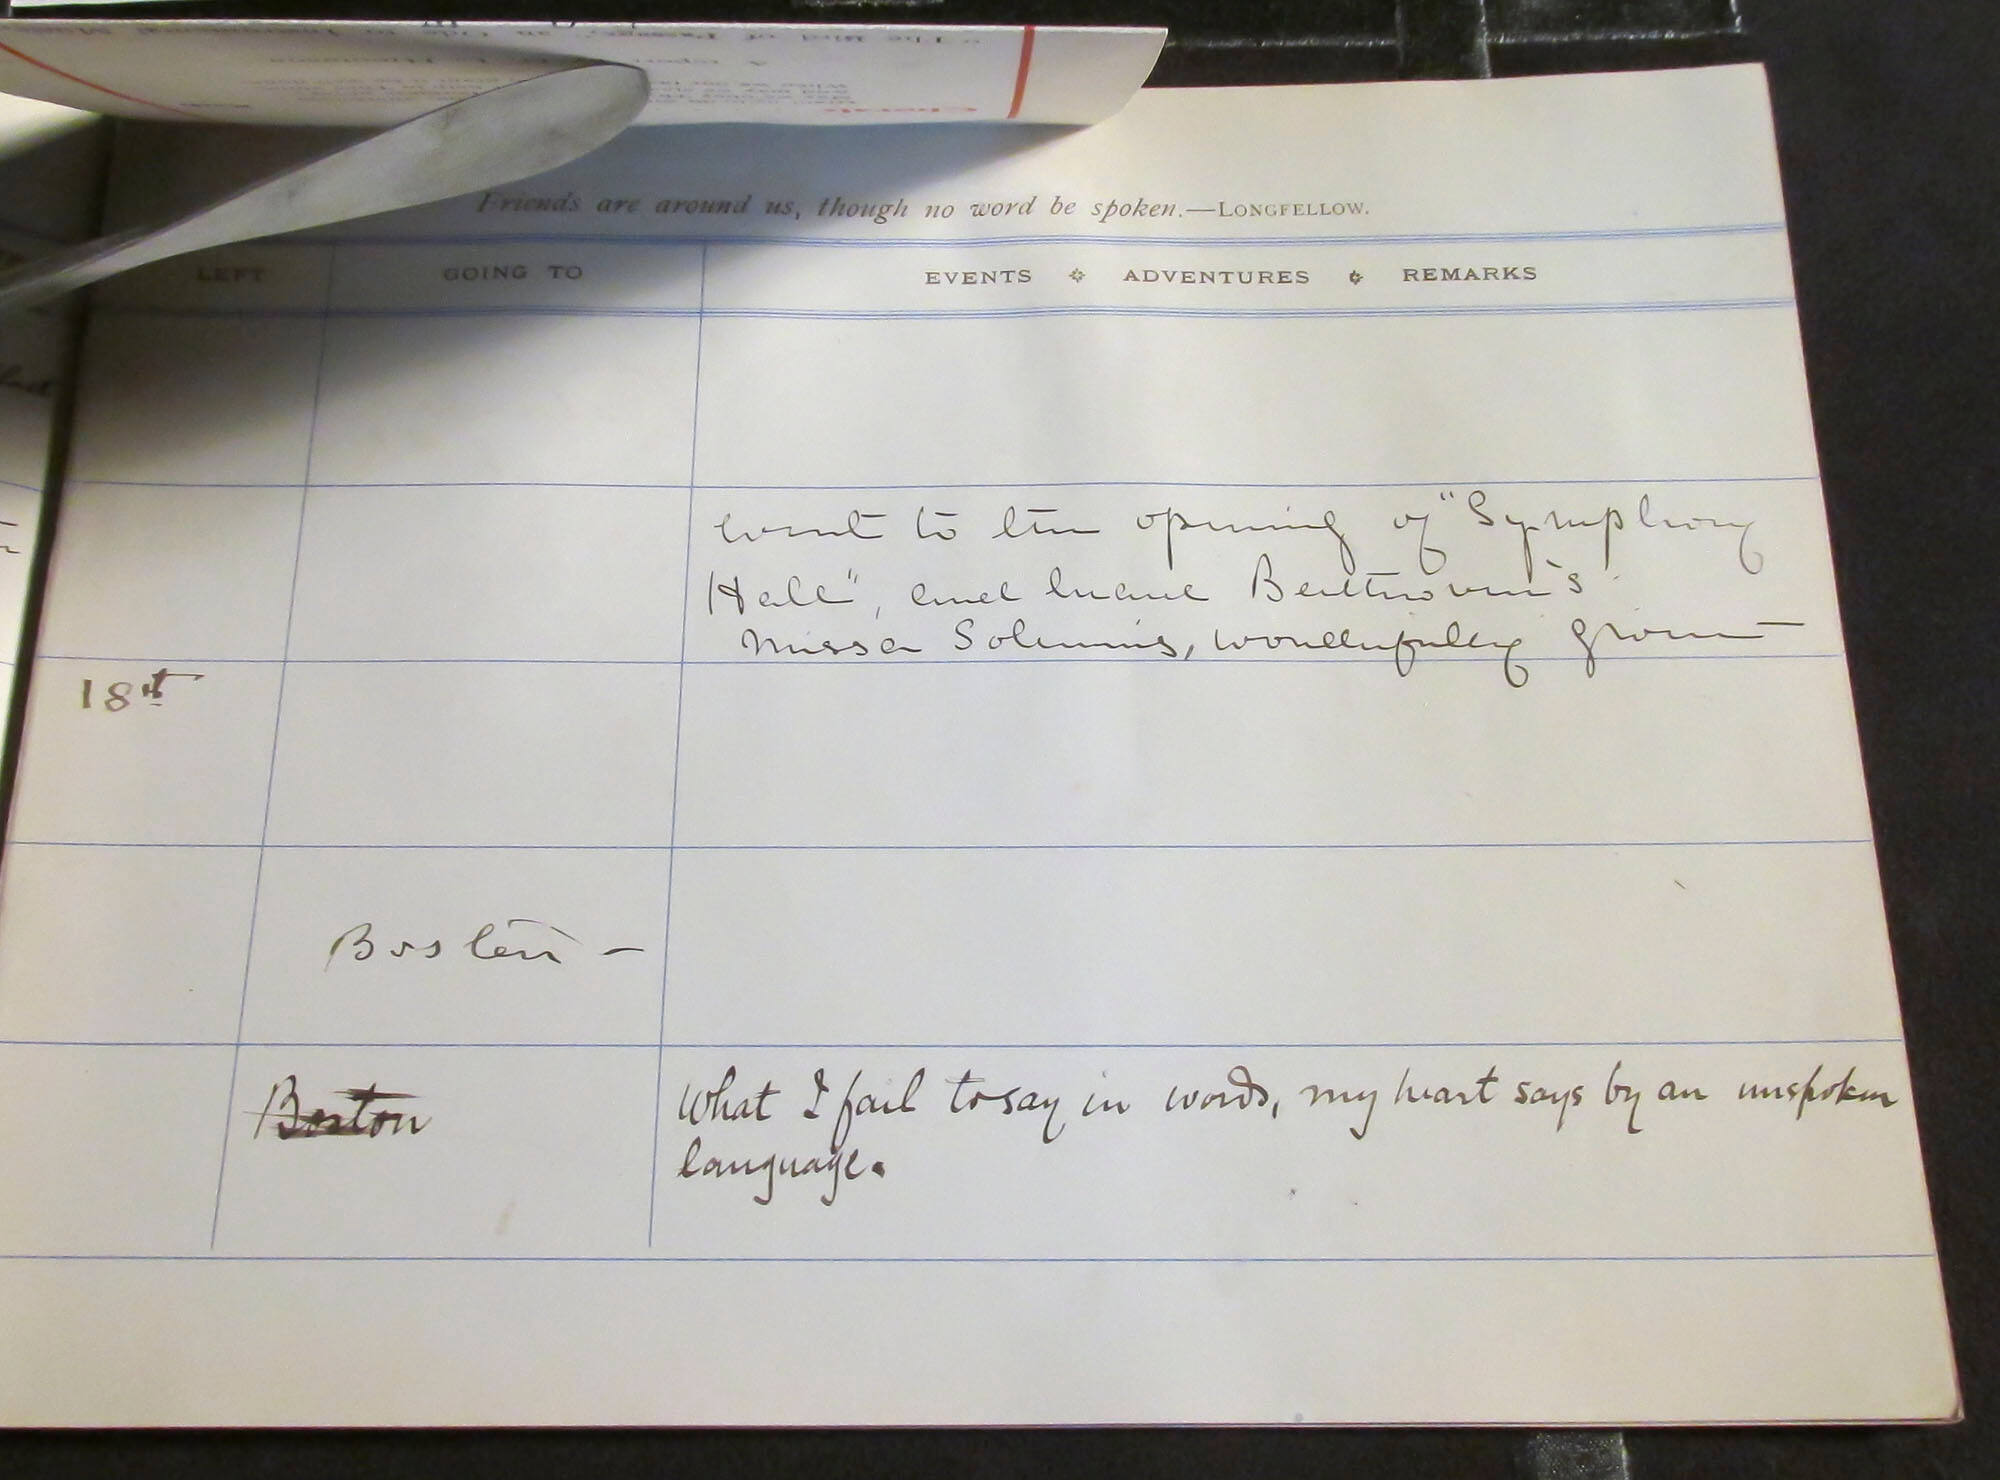 Choral:
Friends are around us, though no word be spoken.—LONGFELLOW.
LEFT GOING TO EVENTS ADVENTURES REMARKS
went to the opening of "Symphony
Hall", and heard Beethoven's
Missa Solemnis, wonderfully given
18th
Boston –
Boston What I fail to say in words, my heart says by an unspoken
language.